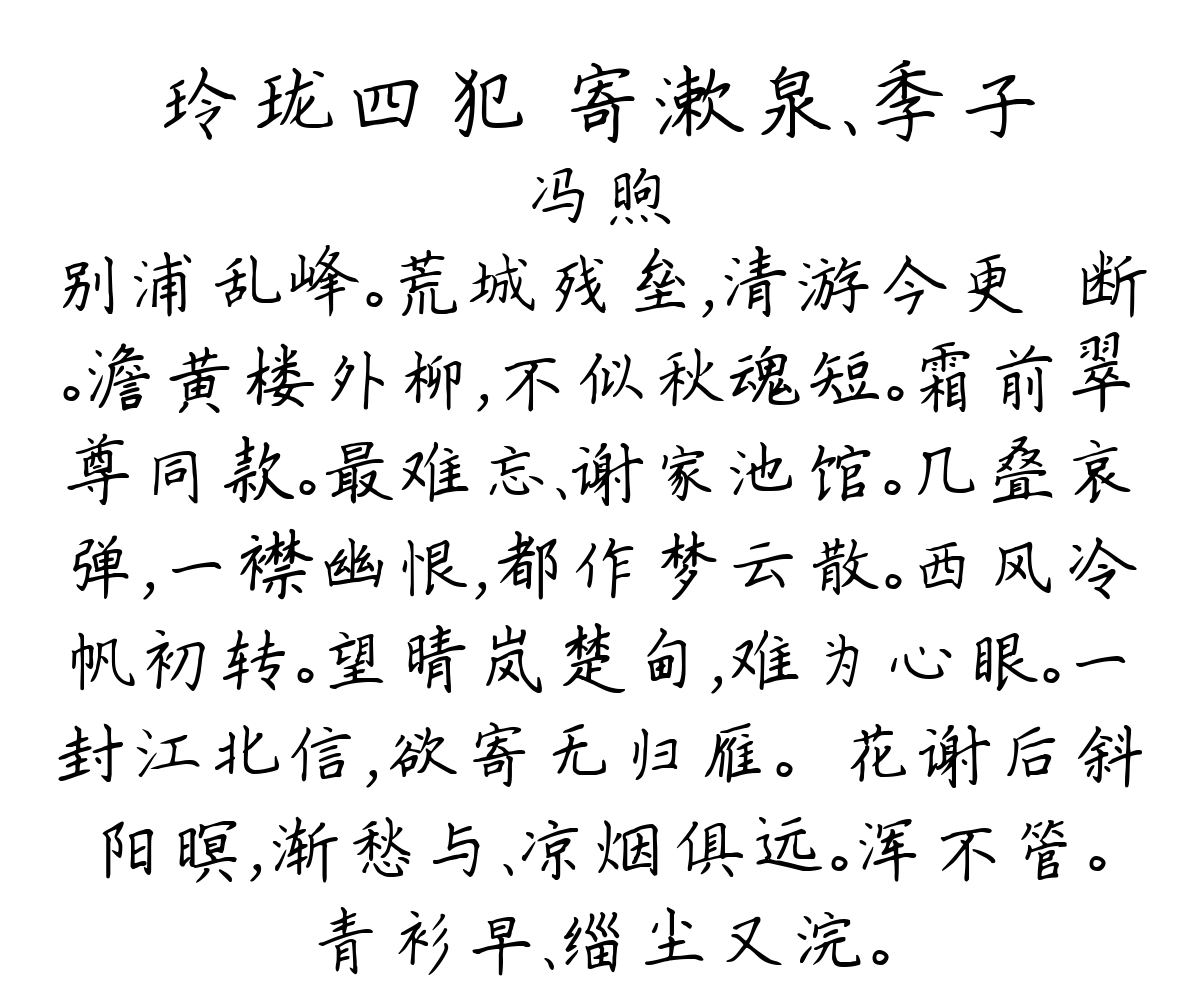 玲珑四犯 寄漱泉、季子
冯煦
别浦乱峰。荒城残垒,清游今更 断
。澹黄楼外柳,不似秋魂短。霜前翠
尊同款。最难忘、谢家池馆。几叠哀
弹,一襟幽恨,都作梦云散。西风冷
帆初转。望晴岚楚甸,难为心眼。一
封江北信,欲寄无归雁。 花谢后斜
阳暝,渐愁与、凉烟俱远。浑不管。
青衫早、缁尘又浣。